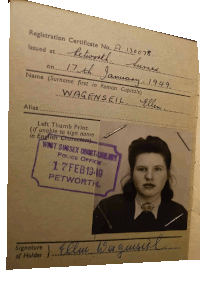 Registration Certificate No. A 130078
Issued at Petworth Sussex
on 17th January, 1949.
Name (Surname first in Roman Capitals)
WAGENSEIL, Ellen.
Alias
Left Thumb Print
(if unable to sign name
in English Characters)
WEST SUSSEX CONSTABULARY
POLICE OFFICE
17 FEB 1949
PETWORTH.
Signature
of Holder
Ellen Wagenseil